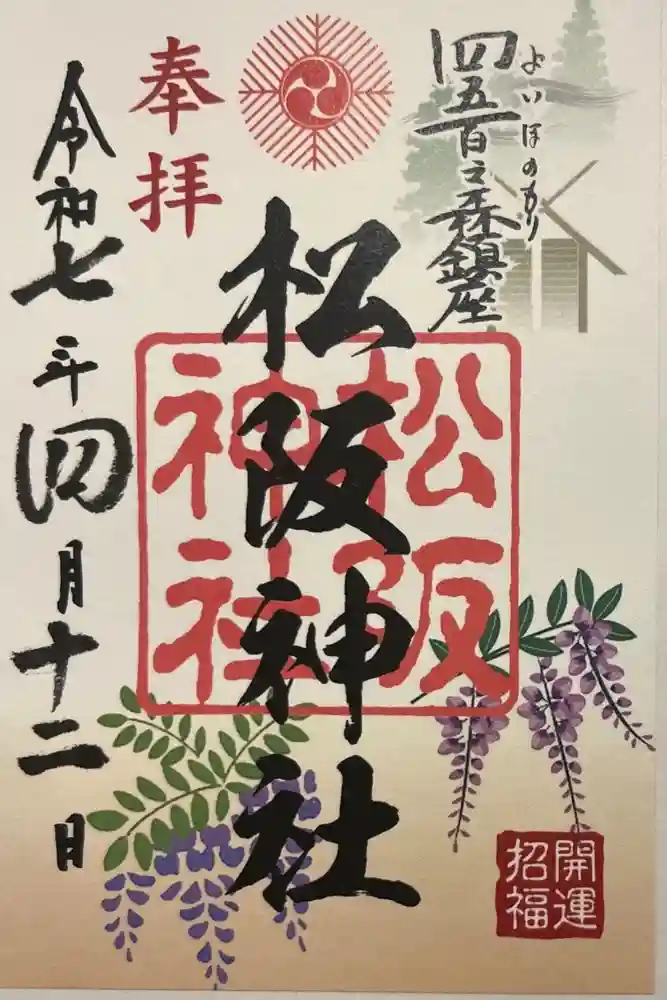 四五百之森鎮座
よいほのもり
奉拝
松阪神社
松阪
神社
令和七年四月十二日
開運
招福